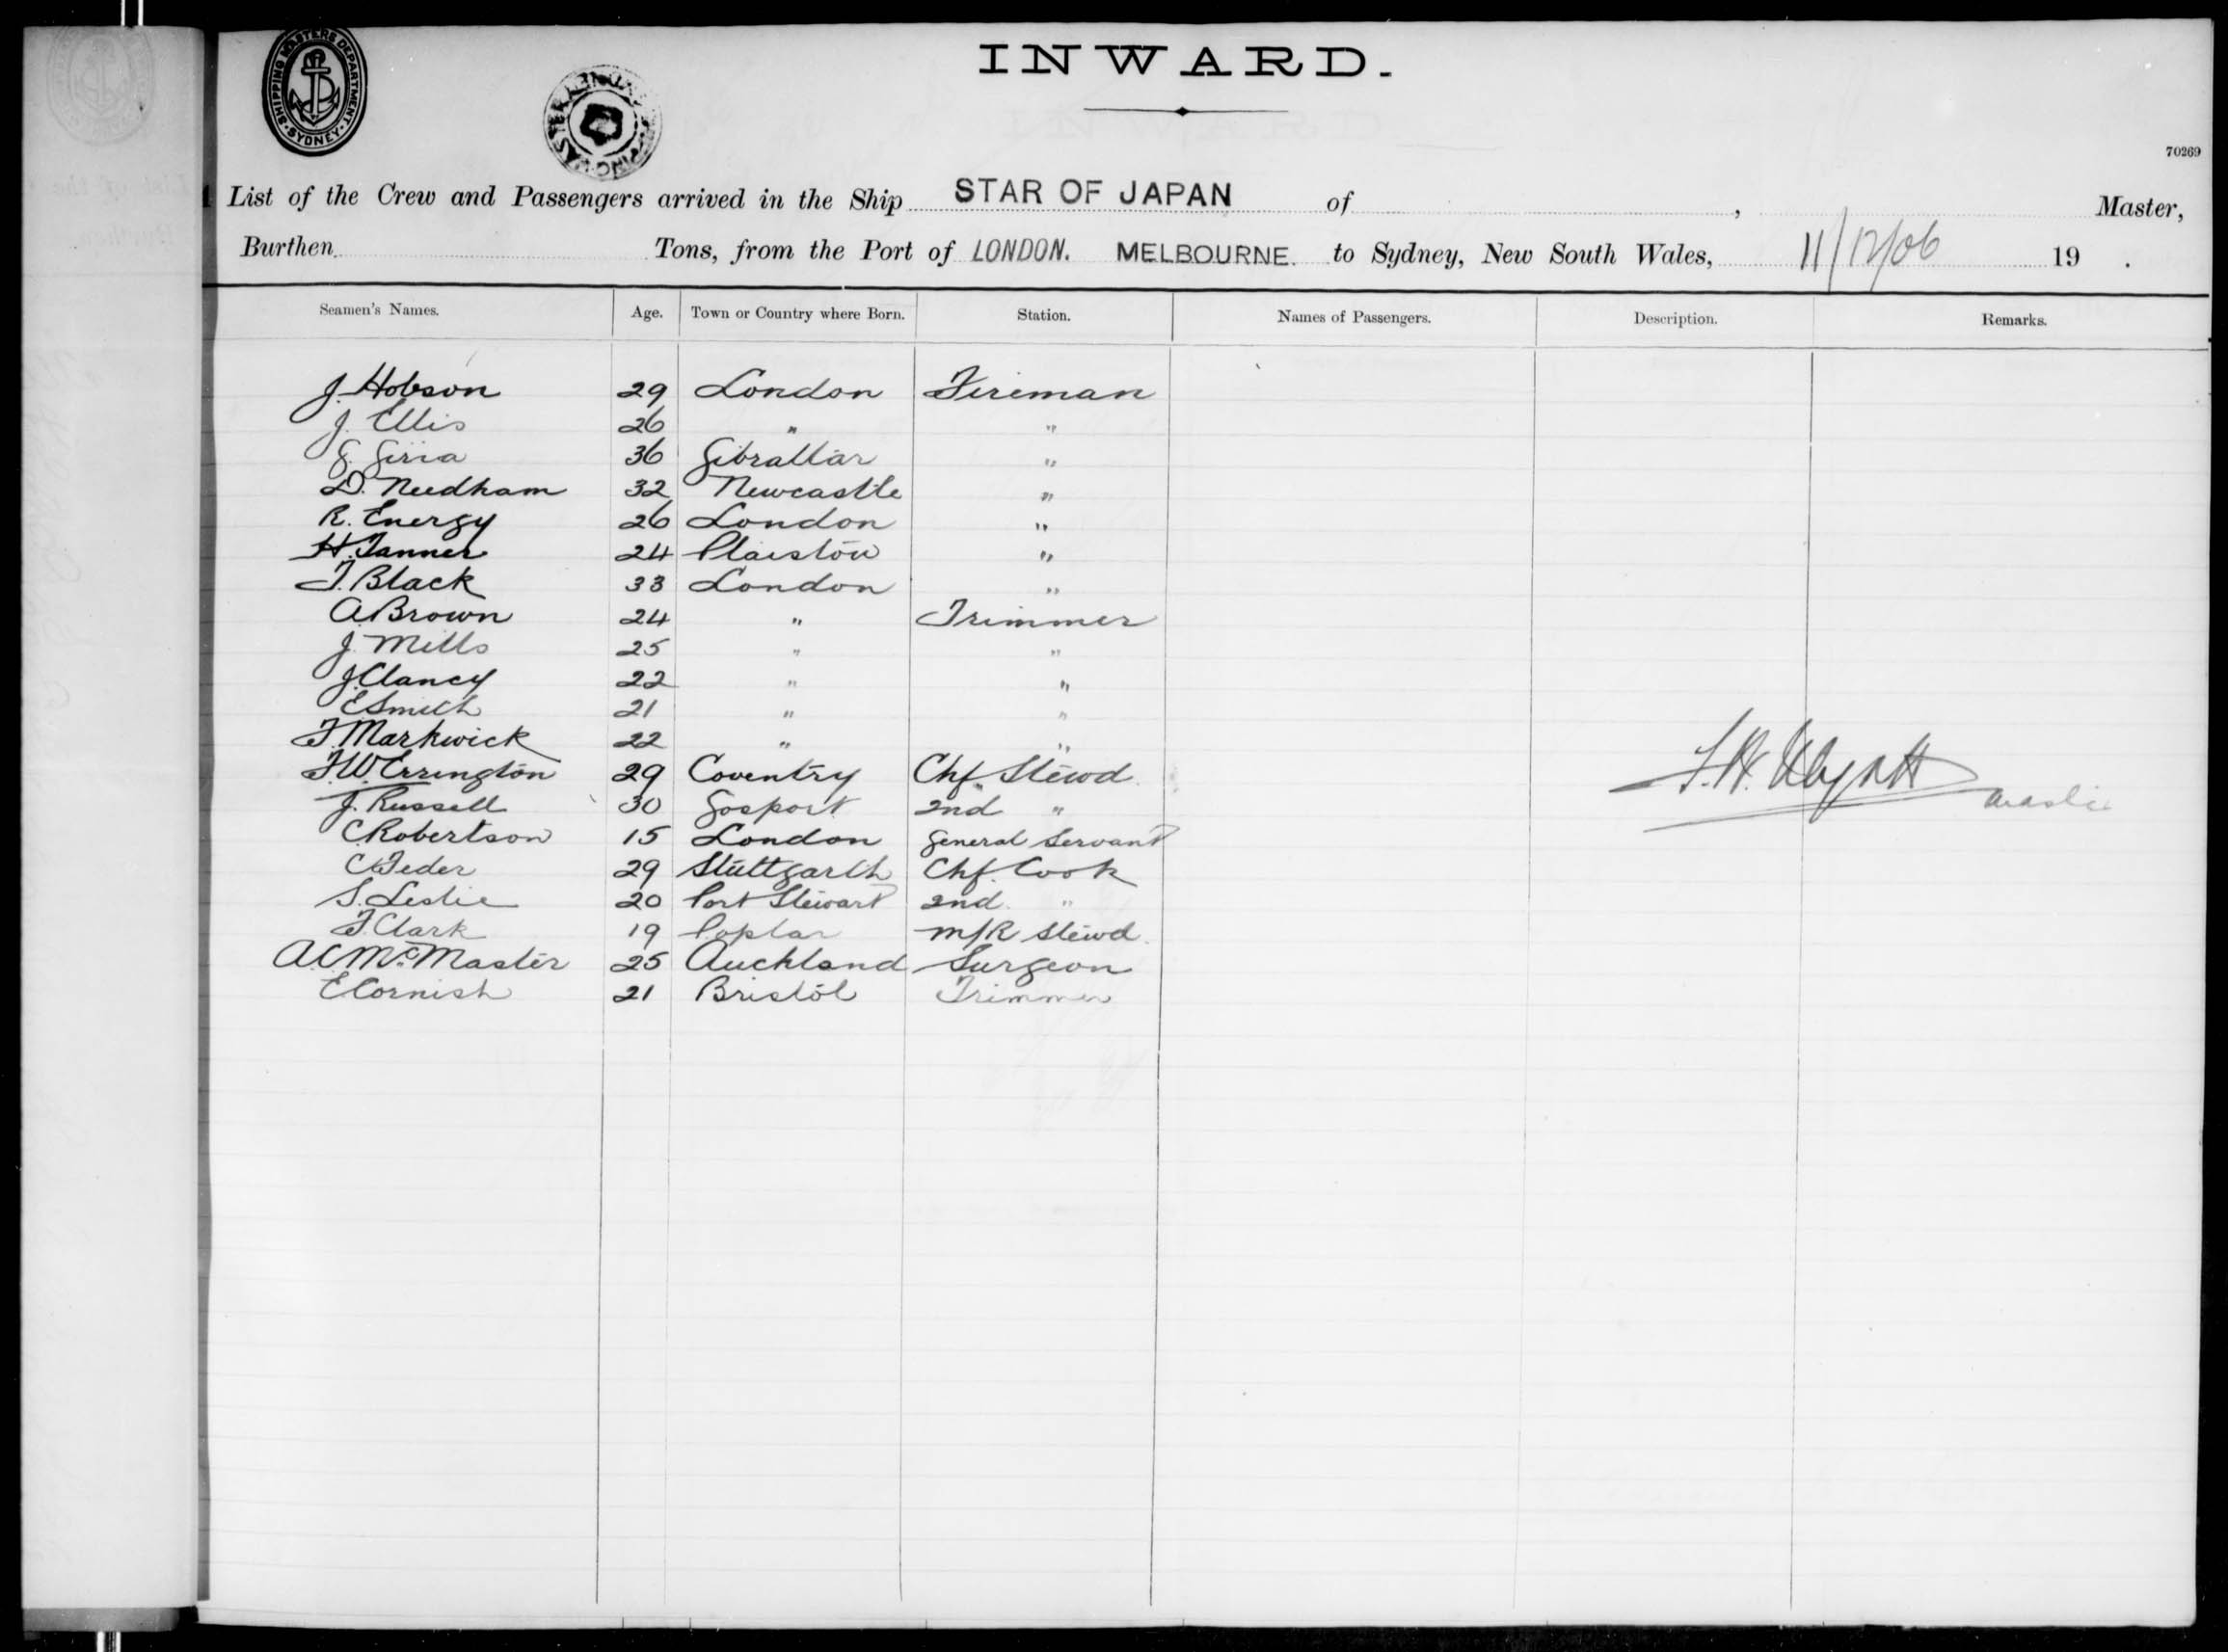 INWARD.
SHIPPING MASTERS DEPARTMENT. SYDNEY.
70269
List of the Crew and Passengers arrived in the Ship STAR OF JAPAN of , Master,
Burthen Tons, from the Port of LONDON. MELBOURNE. to Sydney, New South Wales, 11/12/06 19 .
Seamen's Names. Age. Town or Country where Born. Station. Names of Passengers. Description. Remarks.
J. Hobson 29 London Fireman
J. Ellis 26 " "
36 Gibraltar "
D. Needham 32 Newcastle "
R. Energy 26 London "
H. Tanner 24 Plaistow "
T. Black 33 London "
A. Brown 24 " Trimmer
J. Mills 25 " "
J. Clancy 22 " "
E Smith 21 " "
F. Markwick 22 " "
F.W. Errington 29 Coventry Chf. Stewd.
J. Russell 30 Gosport 2nd "
C. Robertson 15 London General Servant
C. Feder 29 Stuttgarth Chf. Cook
S. Leslie 20 Port Stewart 2nd. "
F. Clark 19 Poplar M/R Stewd.
A.C. McMaster 25 Auckland Surgeon
E Cornish 21 Bristol Trimmer
Wyatt Master